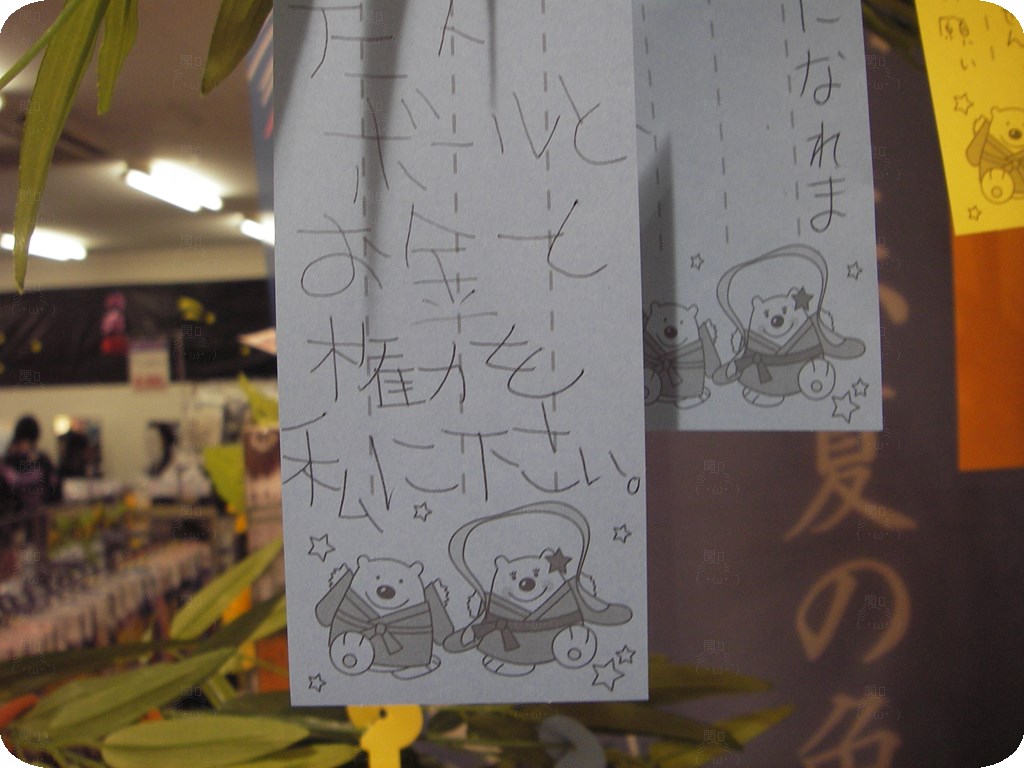 ボールと
お金と
権力を
私に下さい。
になれま
願い
夏の色